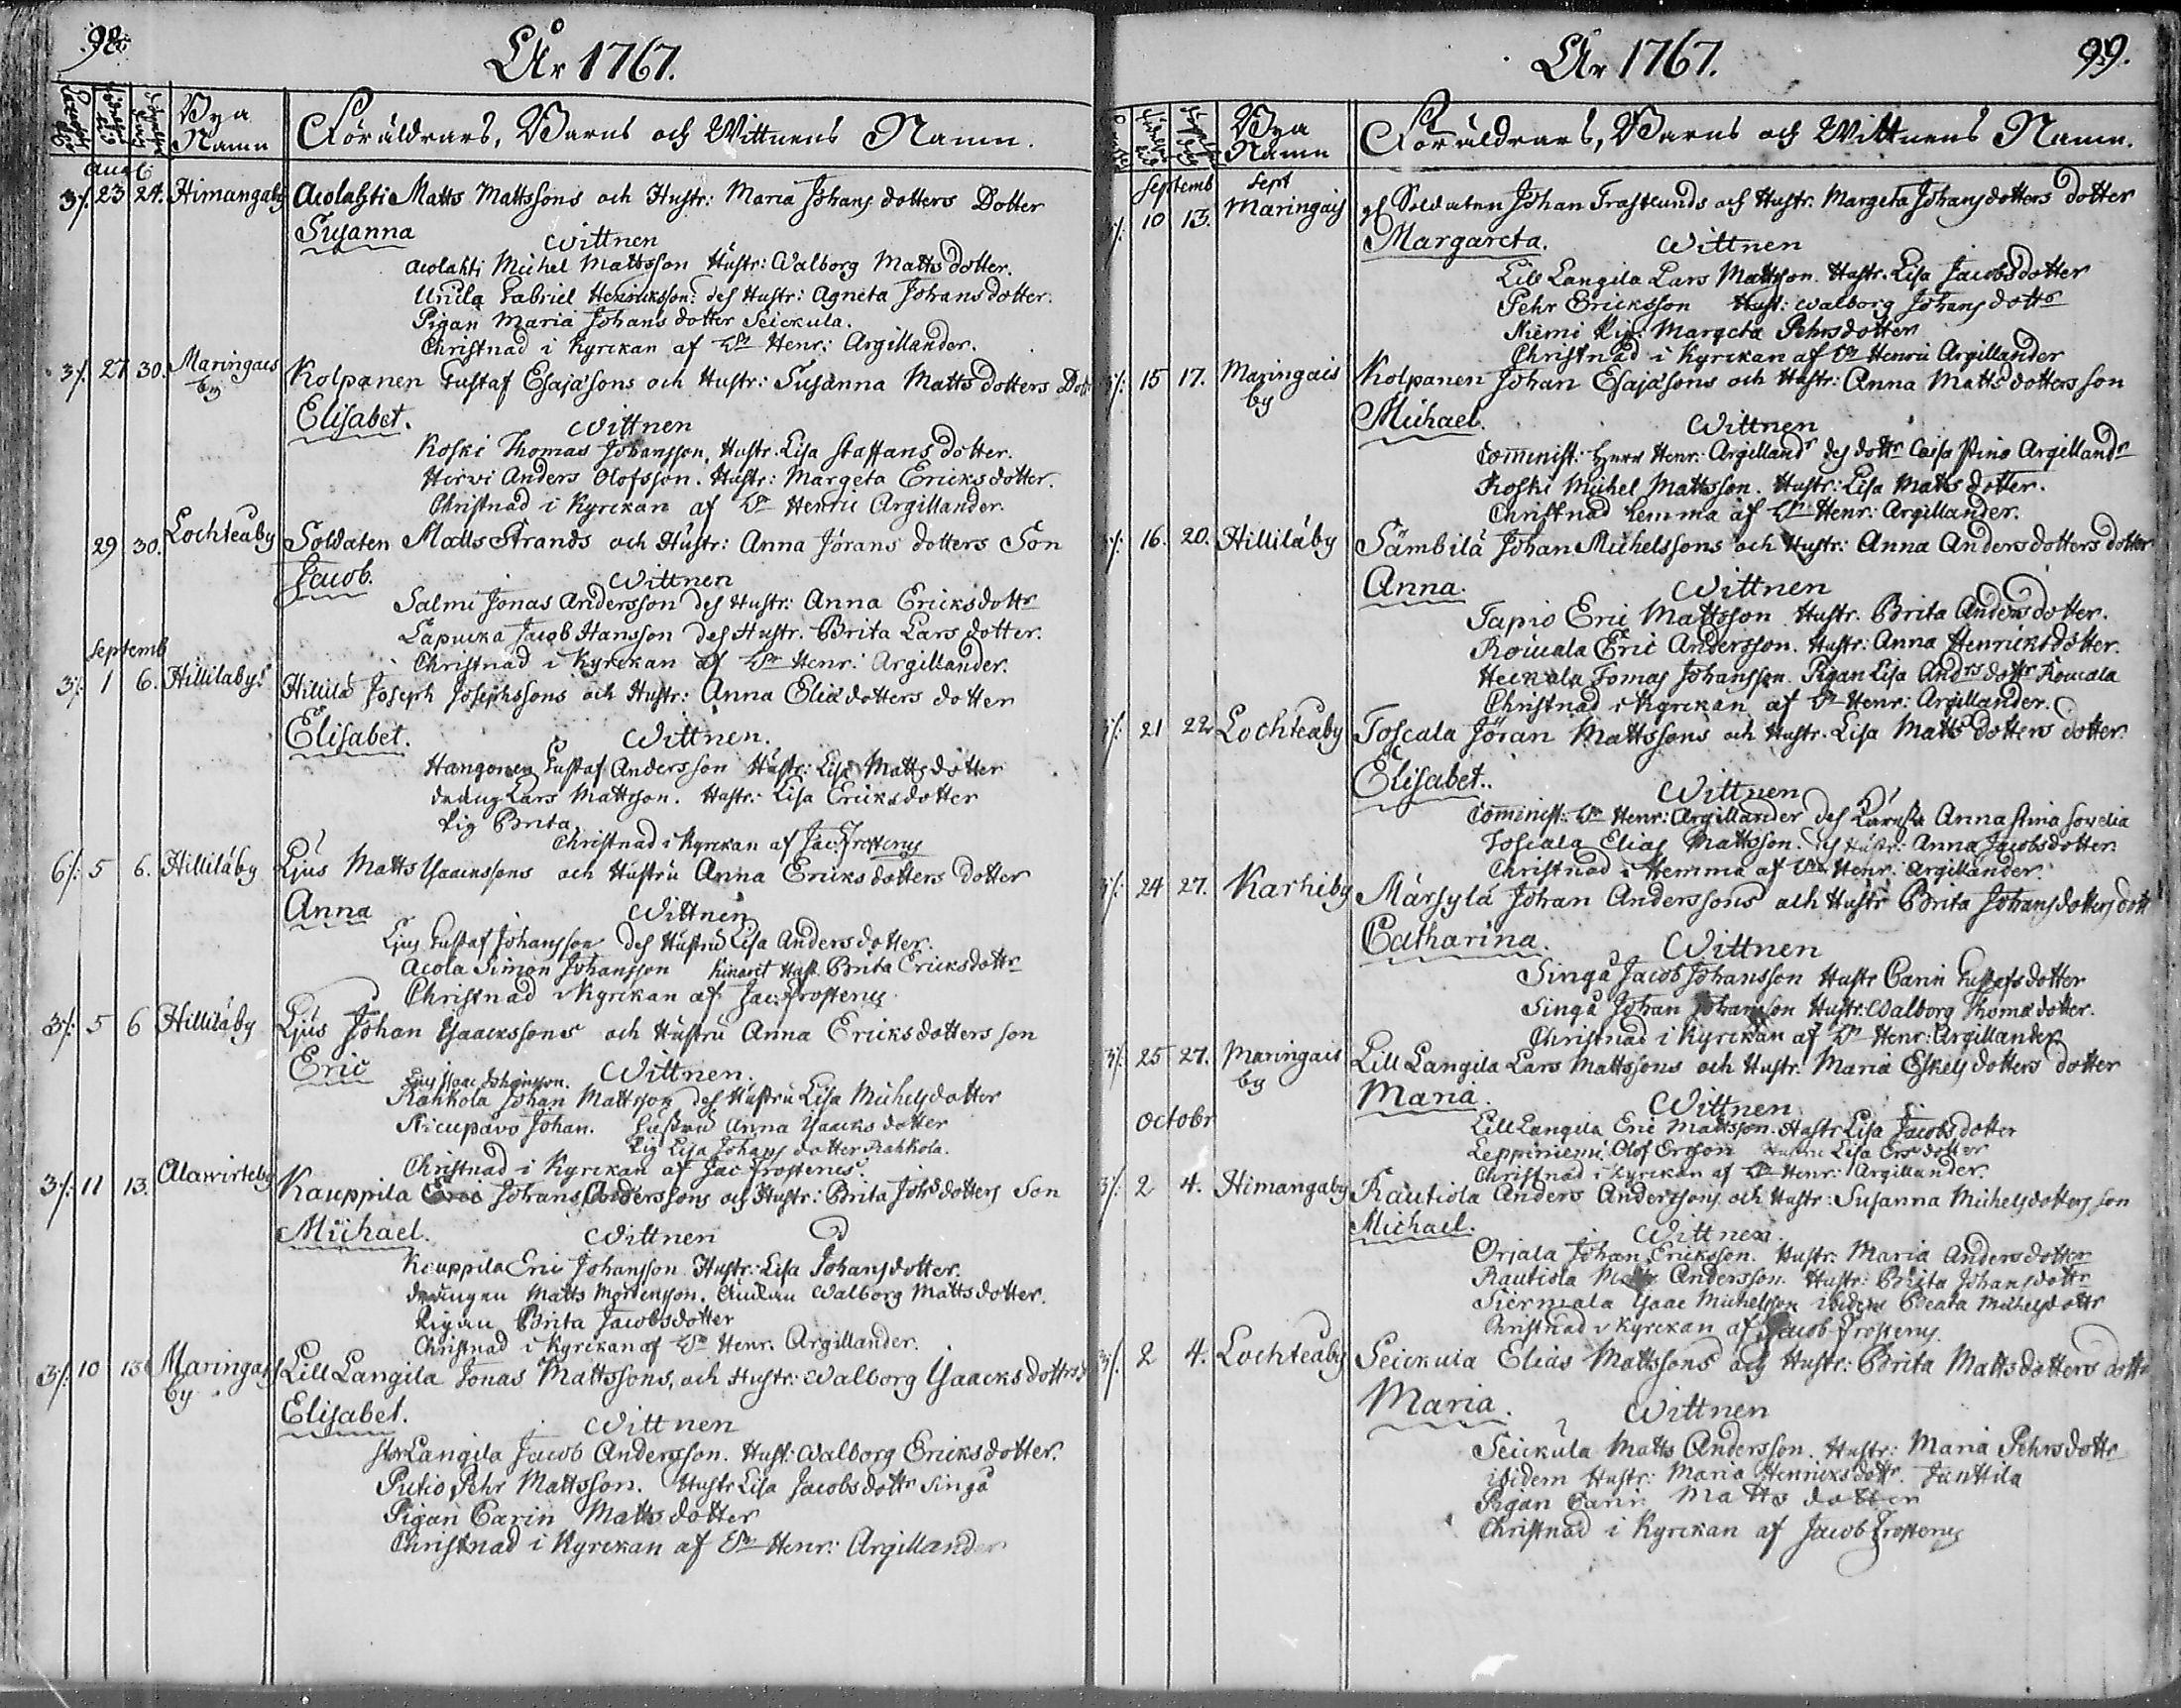 98.
År 1767.
Bya Namn
Föräldrars, Barns och Wittnens Namn.
Aug
3/. 23 24. Himangaby Aolahti Matts Mattssons och Hustr: Maria Johans dotters Dotter
Susanna
Wittnen
Aolahti Michel Mattsson Hustr: Walborg Matts dotter.
Gabriel Henriksson: des Hustr: Agneta Johans dotter.
Pigan Maria Johans dotter Seickula.
Christnad i Kyrckan af Hr Henr: Argillander.
3/. 27 30. Maringais by Kolpanen Gustaf Esajæsons och Hustr: Susanna Matts dotters Dott
Elisabet.
Wittnen
Koski Thomas Johansson, Hustr. Lisa Staffans dotter.
Hirvi Anders Olofsson. Hustr: Margeta Ericks dotter.
Christnad i Kyrckan af Hr Henric Argillander.
29 30. Lochteaby Soldaten Matts Strands och Hustr: Anna Jörans dotters Son
Jacob.
Wittnen
Salmi Jonas Andersson des Hustr: Anna Ericksdottr
Lapucka Jacob Hansson des Hustr. Brita Lars dotter.
Christnad i Kyrckan af Hr Henr: Argillander.
Septemb
3/. 1 6. Hillilaby Hillilä Joseph Josephssons och Hustr: Anna Eliædotters dotter
Elisabet.
Wittnen.
Hangonen Gustaf Andersson Hustr: Lisa Matts dotter
dräng Lars Mattsson. Hustr: Lisa Ericksdotter
Pig Brita
Christnad i Kyrckan af Jac: Frosterus
6/. 5 6. Hilliläby Ljus Matts Ysaackssons och Hustru Anna Ericks dotters dotter
Anna
Wittnen
Ljus Gustaf Johansson des Hustru Lisa Anders dotter.
Acola Simon Johansson Kinaret Hust. Brita Ericksdottr
Christnad i Kyrckan af Jac: Frosterus
3/. 5 6 Hilliläby Ljus Johan Ysaackssons och Hustru Anna Ericksdotters son
Eric
Wittnen.
Ljus Isaac Johansson.
Rahkola Johan Mattsson des Hustru Lisa Michelsdotter
Johan. Hustru Anna Ysaacks dotter
Pig Lisa Johans dotter Rahkola.
Christnad i Kyrckan af Jac Frosterus.
3/. 11 13. Alawirteby Kauppila Eric Johans Anderssons och Hustr: Brita Johs dotters Son
Michael.
Wittnen
Kauppila Eric Johansson Hustr: Lisa Johansdotter.
drängen Matts Mortensson. Walborg Mattsdotter.
Pigan Brita Jacobsdotter
Christnad i Kyrckan af Hr Henr. Argillander.
3/. 10 13 Maringais by Lill Langila Jonas Mattssons, och Hustr: Walborg Ysaacks dottrs
Elisabet.
Wittnen
Stor Langila Jacob Andersson. Hust: Walborg Ericksdotter.
Putio Pehr Mattsson. Hustr Lisa Jacobs dottr Singå
Pigan Carin Matts dotter
Christnad i Kyrckan af Hr Henr: Argillander
99.
År 1767.
Bya Namn
Föräldrars, Barns och Wittnens Namn.
Septemb Sept
10 13. Maringais gl Soldaten Johan Frastlunds och Hustr. Margeta Johansdotters dotter
Margareta.
Wittnen
Lill Langila Lars Mattsson. Hustr. Lisa Jacobsdotter
Pehr Ericksson Hust: Walborg Johans dottr
Niemi Pig: Margeta Pehrsdotter
Christnad i Kyrckan af Hr Henric Argillander
15 17. Maringais by Kolpanen Johan Esajæsons och Hustr: Anna Matts dotters son
Michael.
Wittnen
Comminist. Herr Henr: Argilland des dottr Caisa Stina Argillandr
Koski Michel Mattsson. Hustr: Lisa Matts dotter.
Christnad hemma af Hr Henr: Argillander.
16. 20. Hilliläby Sämbilä Johan Michelssons och Hustr: Anna Andersdotters dotter
Anna.
Wittnen
Tapio Eric Mattsson Hustr. Brita Anders dotter.
Eric Andersson. Hustr: Anna Henricksdotter.
Heickala Tomas Johansson. Pigan Lisa Andrs dottr
Christnad i Kyrckan af Hr Henr: Argillander.
21 22 Lochteaby Toscala Jöran Mattssons och Hustr. Lisa Matts dotters dotter
Elisabet.
Wittnen
Cominist: Hr Henr: Argillander des Anna Stina
Toscala Elias Mattsson. des Hustr: Anna Jacobsdotter.
Christnad i Hemma af Hr Henr: Argillander.
3/. 24 27. Karhiby Märsylä Johan Anderssons och Hustr Brita Johansdotters dott
Catharina.
Wittnen
Singå Jacob Johansson Hustr Carin Gustafsdotter
Singå Johan Johansson Hustr: Walborg Thomæ dotter.
Christnad i Kyrckan af Hr Henr: Argillander
3/. 25 27. Maringais by Lill Langila Lars Mattssons och Hustr: Maria Eskels dotters dotter
Maria.
Wittnen
Lill Langila Eric Mattsson. Hustr Lisa Jacobs dotter
Leppiniemi Olof Ersson Hustru Lisa Ers dotter
Christnad i Kyrckan af Hr Henr: Argillander.
Octobr
3/. 2 4. Himangaby Rautiola Anders Anderssons och Hustr: Susanna Michelsdotters son
Michael.
Wittnen.
Orjala Johan Ericksson. Hustr: Maria Andersdotter
Rautiola Andersson. Hustr: Brita Johansdottr
Siermala Ysaac Michelsson ibidem Beata Michelsdottr
Christnad i Kyrckan af Jacob Frosterus.
3/. 2 4. Lochteaby Seickula Elias Mattssons och Hustr: Brita Mattsdotters dottr
Maria.
Wittnen
Seickula Matts Andersson. Hustr: Maria Pehrsdottr
ibidem Hustr: Maria Henricksdottr Junttila
Pigan Carin Matts dotter
Christnad i Kyrckan af Jacob Frosterus